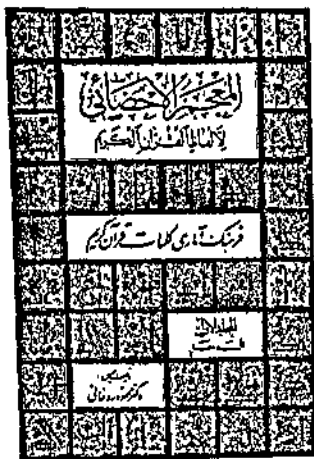 المعجم الإحصائي
لألفاظ القرآن الكريم
فرهنگ آماری کلمات قرآن کریم
المجلد الأول
دکتر محمود روحانی